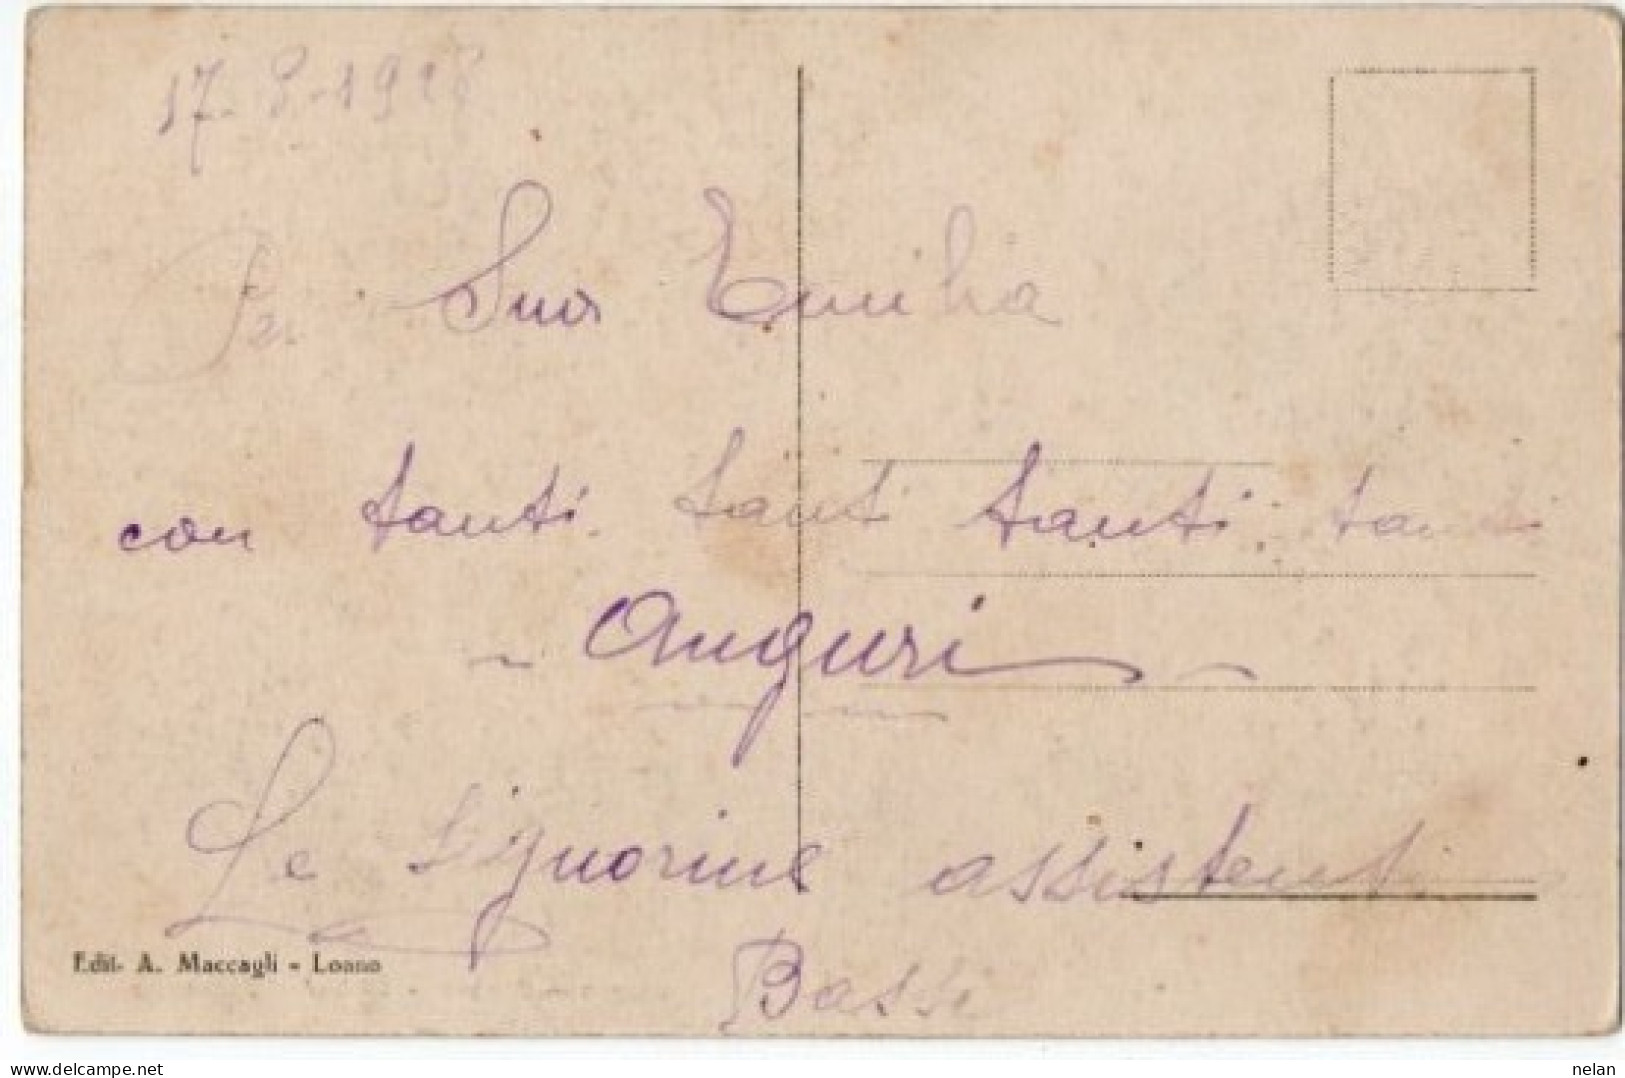 17-8-1928
Per Suor Emilia
con tanti tanti tanti tanti
Auguri
Le signorine assistenti
Bassi
Edit- A. Maccagli - Loano
nelan